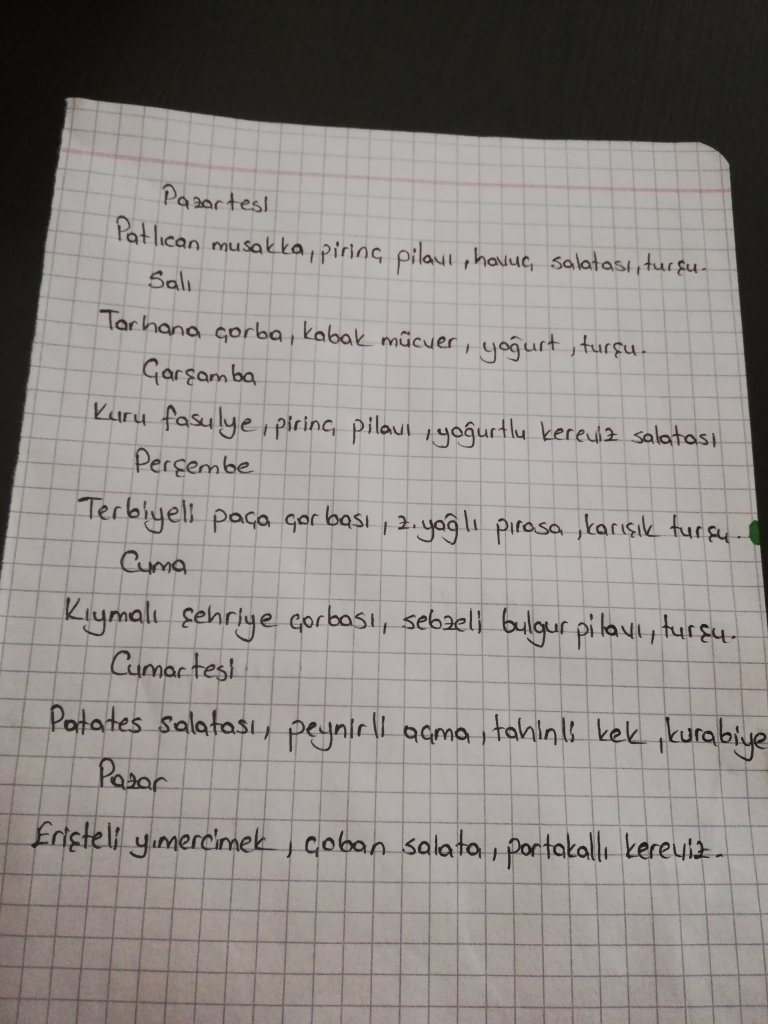 Pazartesi
Patlıcan musakka, pirinç pilavı, havuç salatası, turşu.
Salı
Tarhana çorba, kabak mücver, yoğurt, turşu.
Çarşamba
Kuru fasulye, pirinç pilavı, yoğurtlu kereviz salatası
Perşembe
Terbiyeli paça çorbası, z.yağlı pırasa, karışık turşu.
Cuma
Kıymalı şehriye çorbası, sebzeli bulgur pilavı, turşu.
Cumartesi
Patates salatası, peynirli açma, tahinli kek, kurabiye
Pazar
Erişteli y.mercimek, çoban salata, portakallı kereviz.